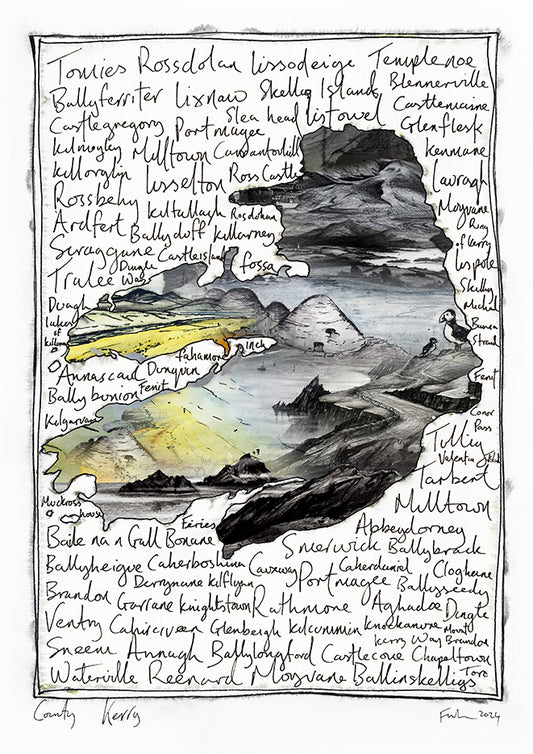 Tomies Rossdolan Lissodeige Templenoe
Ballyferriter Lixnaw Skellig Island Blennerville
Castlegregory Portmagee Slea head Listowel Castlemaine
Kilmoyley Milltown Carrantoohill Glenflesk
Killorglin Lisselton Ross Castle Kenmare
Rossbehy Kilfallagh Rosdohan Lauragh
Ardfert Ballyduff Killarney Moyvane
Swaggune Castleisland fossa Ring of Kerry
Tralee Dingle Way Lispole
Duagh Skellig Michael
Lakes of Killarney Bunan Strand
fahamore Inch
Annascaul Dunquin Fenit
Ballybunion Fenit Conor Pass
Kilgarvan Tullig
Valentia Island
Tarbert
Muckross house Milltown
Fairies Abbeydorney
Baile na n Gall Bonane Smerwick Ballybrack
Ballyheigue Caherboshina Causeway Caherdaniel Cloghane
Brandon Derrynane Kilflynn Portmagee Ballyseedy
Garrane Knightstown Rathmore Aghadoe Dingle
Ventry Cahirciveen Glenbeigh Kilcummin Knockanure Mount Brandon
Sneem Annagh Ballylongford Castlecove Kerry Way Chapeltown
Waterville Reenard Moyvane Ballinskelligs Toro
County Kerry 2024